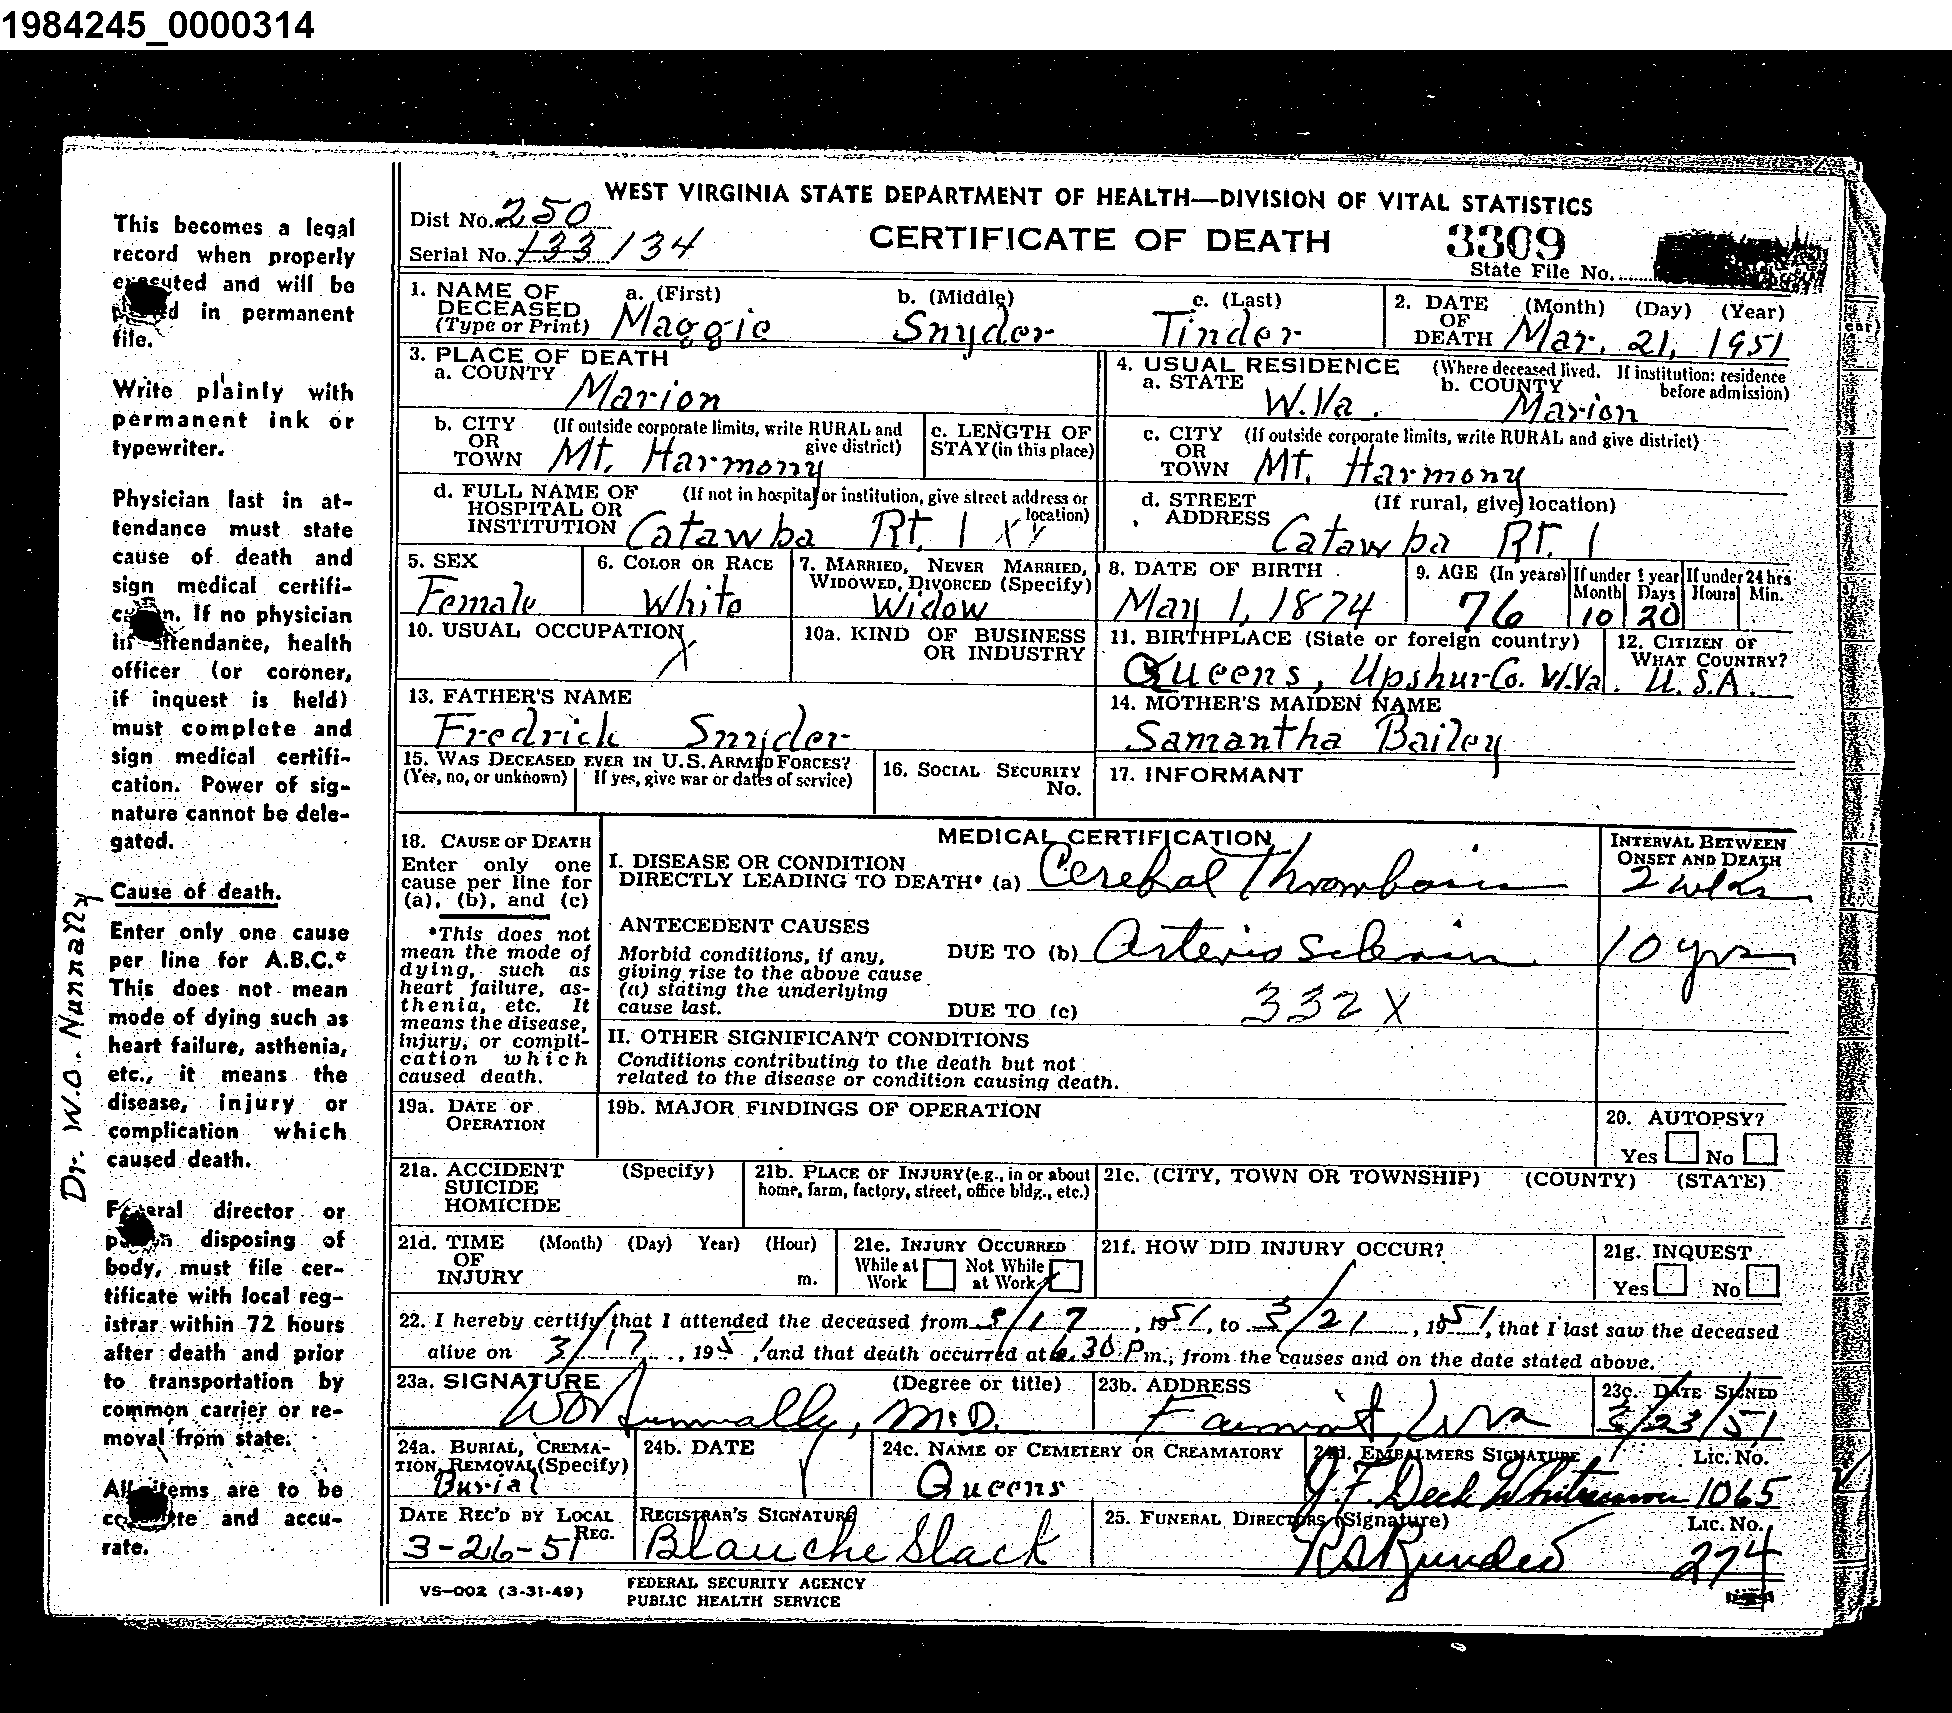 1984245_0000314
WEST VIRGINIA STATE DEPARTMENT OF HEALTH—DIVISION OF VITAL STATISTICS
Dist No. 250
Serial No. 133 134
CERTIFICATE OF DEATH
3309
State File No.
1. NAME OF DECEASED (Type or Print)
a. (First) Maggie
b. (Middle) Snyder
c. (Last) Tinder
2. DATE OF DEATH (Month) (Day) (Year) Mar. 21, 1951
3. PLACE OF DEATH
a. COUNTY Marion
4. USUAL RESIDENCE (Where deceased lived. If institution: residence before admission)
a. STATE W.Va.
b. COUNTY Marion
b. CITY OR TOWN (If outside corporate limits, write RURAL and give district) Mt. Harmony
c. LENGTH OF STAY (in this place)
c. CITY OR TOWN (If outside corporate limits, write RURAL and give district) Mt. Harmony
d. FULL NAME OF HOSPITAL OR INSTITUTION (If not in hospital or institution, give street address or location) Catawba Rt. 1
d. STREET ADDRESS (If rural, give location) Catawba Rt. 1
5. SEX Female
6. COLOR OR RACE White
7. MARRIED, NEVER MARRIED, WIDOWED, DIVORCED (Specify) Widow
8. DATE OF BIRTH May 1, 1874
9. AGE (In years) 76
If under 1 year Month 10 Days 20
If under 24 hrs. Hours Min.
10. USUAL OCCUPATION X
10a. KIND OF BUSINESS OR INDUSTRY
11. BIRTHPLACE (State or foreign country) Queens, Upshur Co. W.Va.
12. CITIZEN OF WHAT COUNTRY? U.S.A.
13. FATHER'S NAME Fredrick Snyder
14. MOTHER'S MAIDEN NAME Samantha Bailey
15. WAS DECEASED EVER IN U.S. ARMED FORCES?
(Yes, no, or unknown) If yes, give war or dates of service)
16. SOCIAL SECURITY No.
17. INFORMANT
18. CAUSE OF DEATH
Enter only one
cause per line for
(a), (b), and (c)
*This does not
mean the mode of
dying, such as
heart failure, as-
thenia, etc. It
means the disease,
injury, or compli-
cation which
caused death.
MEDICAL CERTIFICATION
I. DISEASE OR CONDITION
DIRECTLY LEADING TO DEATH* (a) Cerebral Thrombosis
INTERVAL BETWEEN ONSET AND DEATH
2 wks
ANTECEDENT CAUSES
Morbid conditions, if any,
giving rise to the above cause
(a) stating the underlying
cause last.
DUE TO (b) Arterio Sclerosis 10 yrs
DUE TO (c) 332 X
II. OTHER SIGNIFICANT CONDITIONS
Conditions contributing to the death but not
related to the disease or condition causing death.
19a. DATE OF OPERATION
19b. MAJOR FINDINGS OF OPERATION
20. AUTOPSY?
Yes No
21a. ACCIDENT SUICIDE HOMICIDE (Specify)
21b. PLACE OF INJURY (e.g., in or about home, farm, factory, street, office bldg., etc.)
21c. (CITY, TOWN OR TOWNSHIP) (COUNTY) (STATE)
21d. TIME OF INJURY (Month) (Day) Year) (Hour) m.
21e. INJURY OCCURRED
While at Work Not While at Work
21f. HOW DID INJURY OCCUR?
21g. INQUEST
Yes No
22. I hereby certify that I attended the deceased from 3/17, 1951, to 3/21, 1951, that I last saw the deceased
alive on 3/17, 1951 and that death occurred at 6.30 P m., from the causes and on the date stated above.
23a. SIGNATURE (Degree or title) WO Nunnally, M.D.
23b. ADDRESS Fairmont, W Va
23c. DATE SIGNED 3/23/51
24a. BURIAL, CREMATION, REMOVAL (Specify) Burial
24b. DATE
24c. NAME OF CEMETERY OR CREAMATORY Queens
24d. EMBALMERS SIGNATURE J.F. Deck Lic. No. 1065
DATE REC'D BY LOCAL REG. 3-26-51
REGISTRAR'S SIGNATURE Blanche Slack
25. FUNERAL DIRECTORS (Signature) Lic. No. 274
VS-002 (3-31-49)
FEDERAL SECURITY AGENCY
PUBLIC HEALTH SERVICE
This becomes a legal
record when properly
executed and will be
in permanent
file.
Write plainly with
permanent ink or
typewriter.
Physician last in at-
tendance must state
cause of death and
sign medical certifi-
cation. If no physician
in attendance, health
officer (or coroner,
if inquest is held)
must complete and
sign medical certifi-
cation. Power of sig-
nature cannot be dele-
gated.
Cause of death.
Enter only one cause
per line for A.B.C.*
This does not mean
mode of dying such as
heart failure, asthenia,
etc., it means the
disease, injury or
complication which
caused death.
Funeral director or
person disposing of
body, must file cer-
tificate with local reg-
istrar within 72 hours
after death and prior
to transportation by
common carrier or re-
moval from state.
All items are to be
complete and accu-
rate.
Dr. W.O. Nunnally